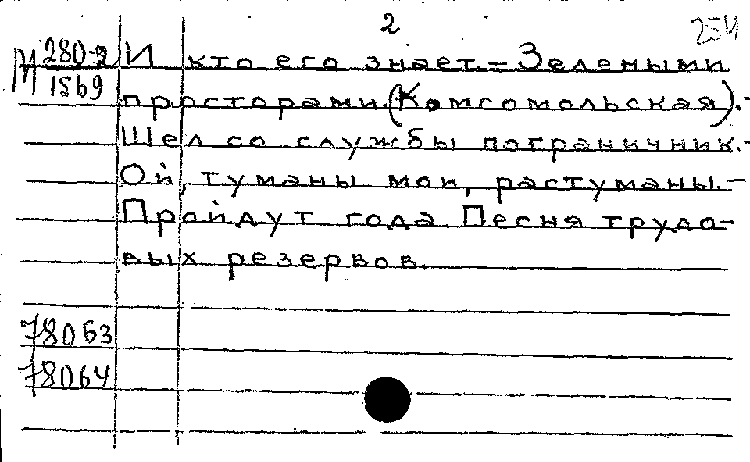 2
254
М 280-2
1569
И кто его знает.- Зелеными
просторами (Комсомольская).-
Шел со службы пограничник.-
Ой, туманы мои, растуманы.-
Пройдут года. Песня трудо-
вых резервов.
78063
78064